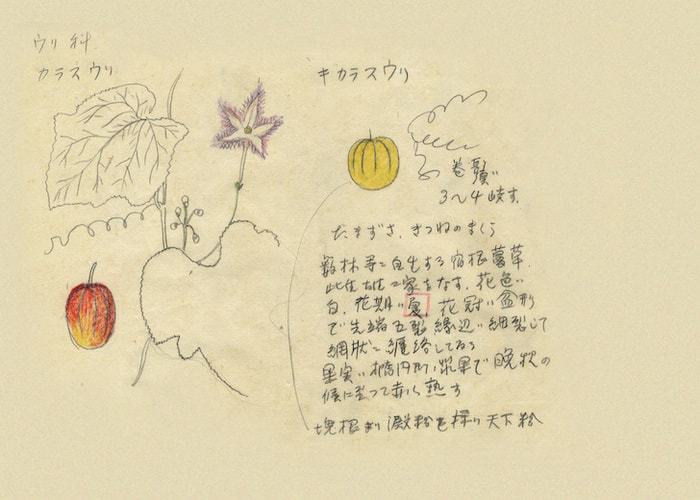 ウリ科
カラスウリ
キカラスウリ
巻鬚ハ
3〜4岐す.
たまずさ. きつねのまくら
藪林等ニ自生する宿根蔓草.
此生雌ニ家をなす. 花色ハ
白. 花期ハ夏. 花冠ハ盆形
で先端五裂 縁辺ハ細裂して
網状ニ纏絡してゐる
果実ハ楕円形ノ漿果で晩秋の
候に至って赤く熟す
塊根より澱粉を採り天下粉